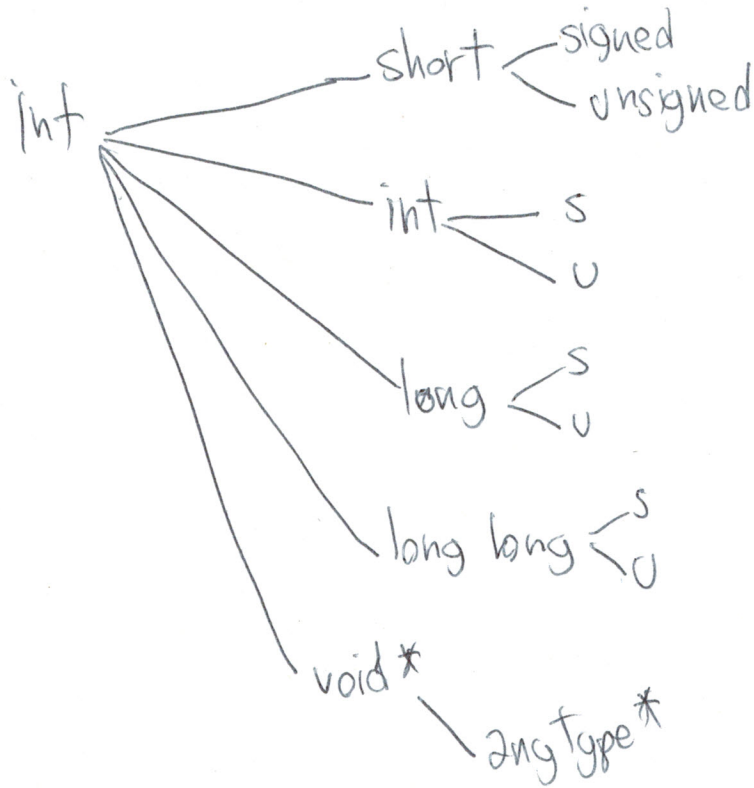 int
short
signed
unsigned
int
s
u
long
s
u
long long
s
u
void*
any type*